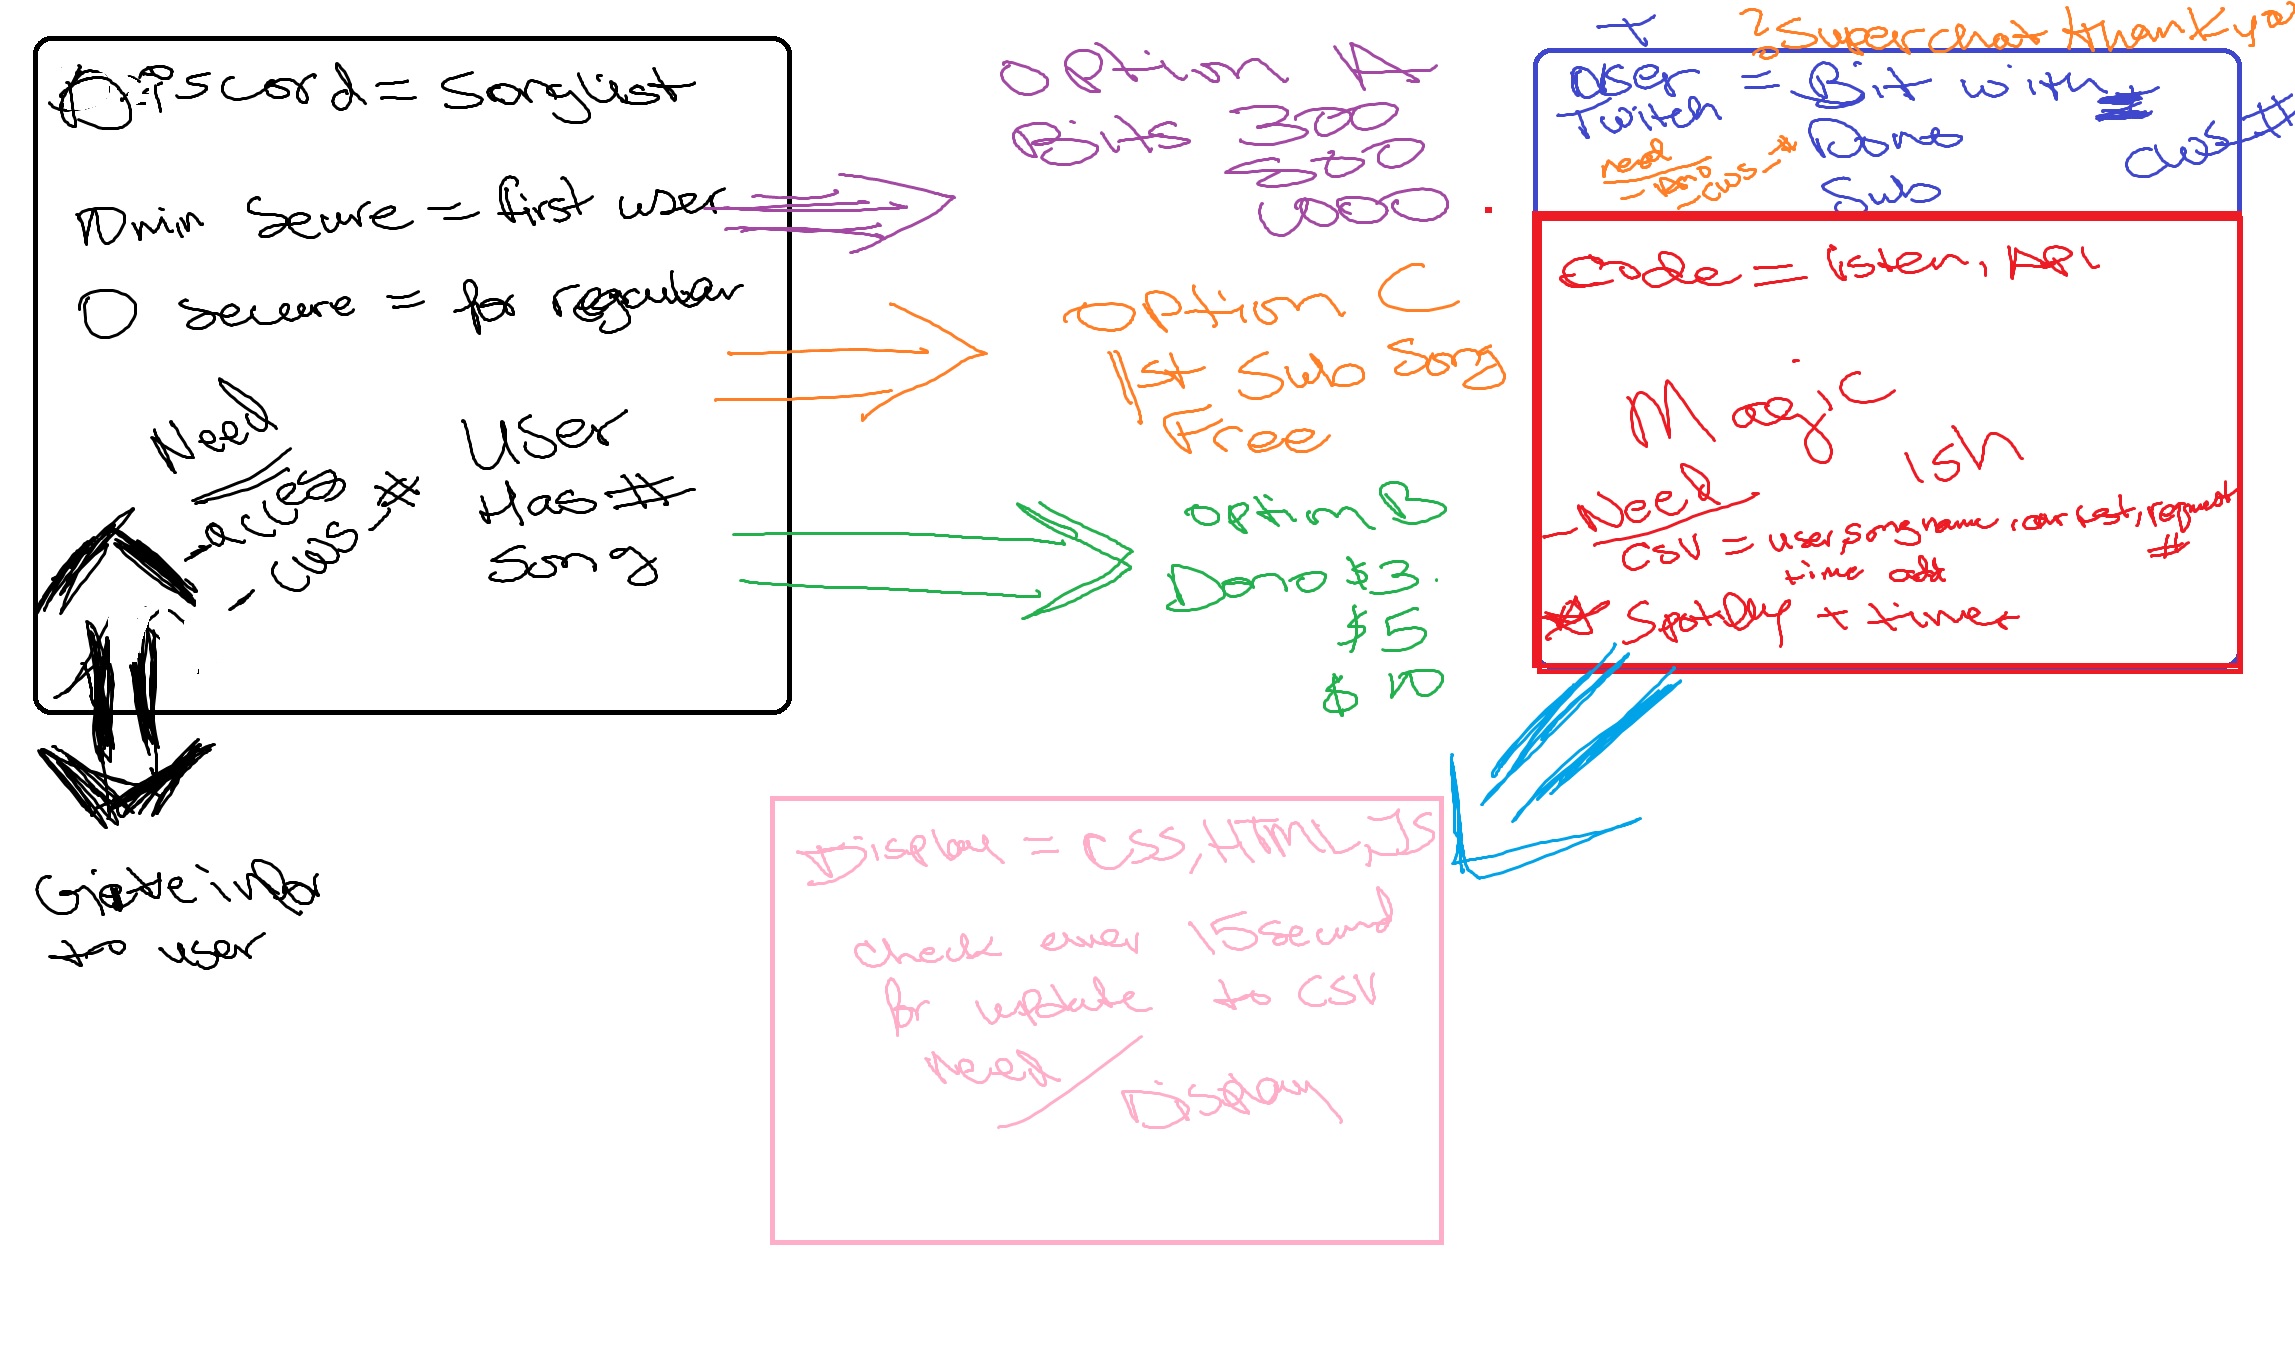 Discord = Songlist
10min Secure = first user
0 secure = for regular
Need
- acces
- cws - #
User
Has #
Song
to user
Option A
Bits 300
500
1000
Option C
1st Sub Song
Free
Option B
Dono $3.
$5
$10
+
? Superchat thank you
User = Bit with
Twitch
Dono
Sub
cws #
need
- Dono
- cws - #
Code = listen, API
Magic
ish
- Need
CSV = user, songname, artist, request
#
time add
Spotify + timer
Display = CSS, HTML, JS
Check ever 15second
for update to CSV
Need
Display